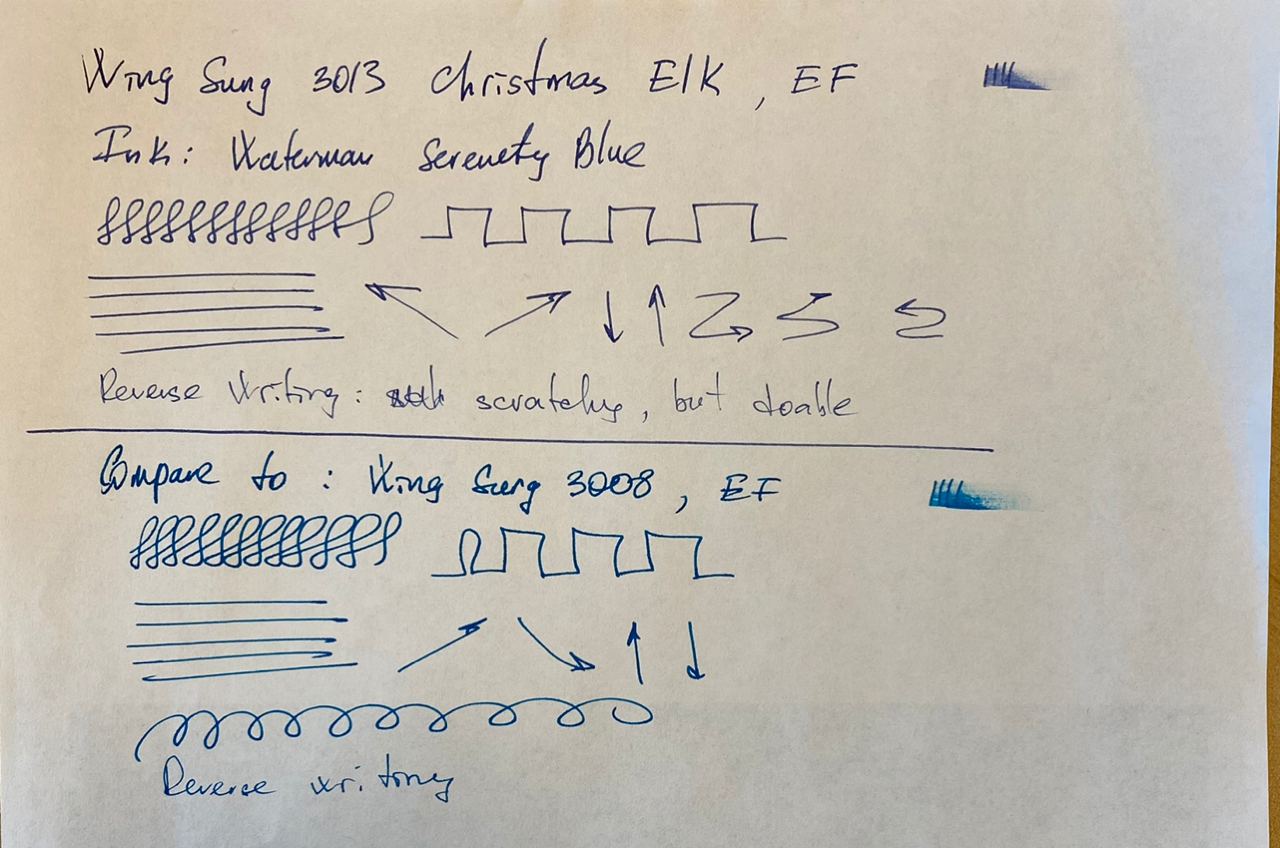 Wing Sung 3013 Christmas Elk, EF
Ink: Waterman Serenety Blue
Reverse Writing: scratchy, but doable
Compare to: Wing Sung 3008, EF
Reverse writing